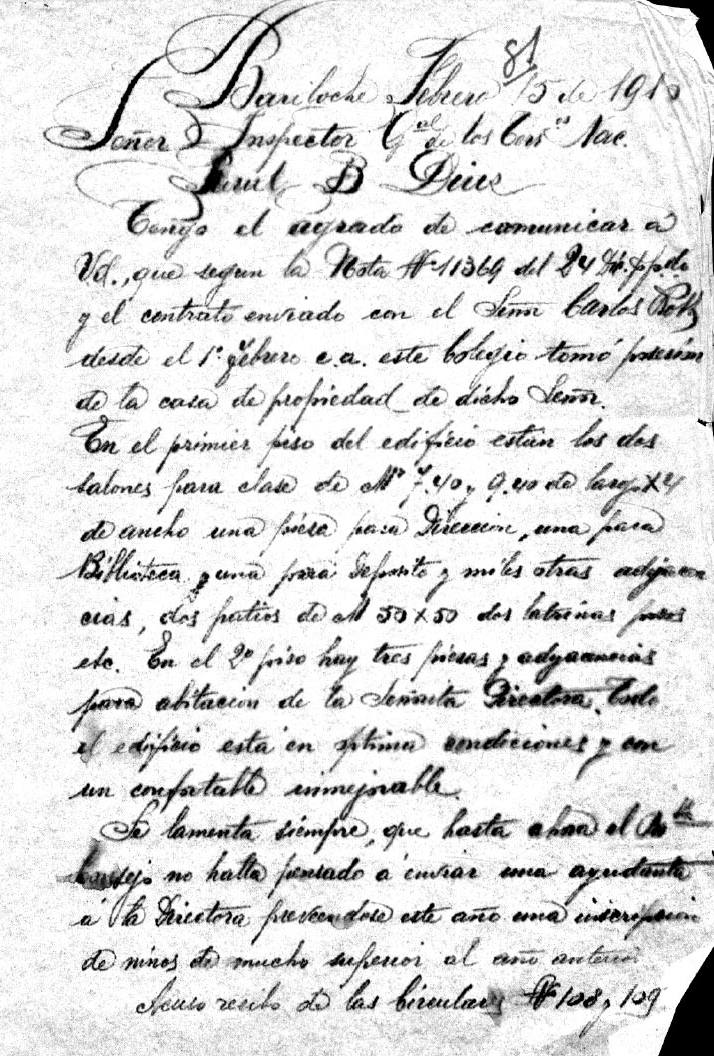 81
Bariloche Febrero 15 de 1910
Señor Inspector Gral de los Terrs Nac.
Raul B Diaz
Tengo el agrado de comunicar a
Vd., que segun la Nota Nº 11369 del 24 ppdo
y el contrato enviado con el Señor Carlos Roth
desde el 1º febrero c.a. este Colegio tomó posesión
de la casa de propiedad de dicho Señor.
En el primier piso del edificio están los dos
salones para clase de Ms 7.40 y 9.40 de largo x 4
de ancho una piesa para Direccion, una para
Biblioteca, y una para Deposito y otras adyacen
cias, dos patios de M 50 x 50 dos latrinas posos
etc. En el 2º piso hay tres piesas y adyacencias
para abitacion de la Señorita Directora. Todo
el edificio está en optima condiciones y con
un confortable inmejorable.
Se lamenta siempre, que hasta ahora el
Consejo no halla pensado á enviar una ayudanta
á la Directora preveendose este año una inscripción
de ninos de mucho superior al año anterior
Acuso recibo de las Circulares Nº 108 y 109